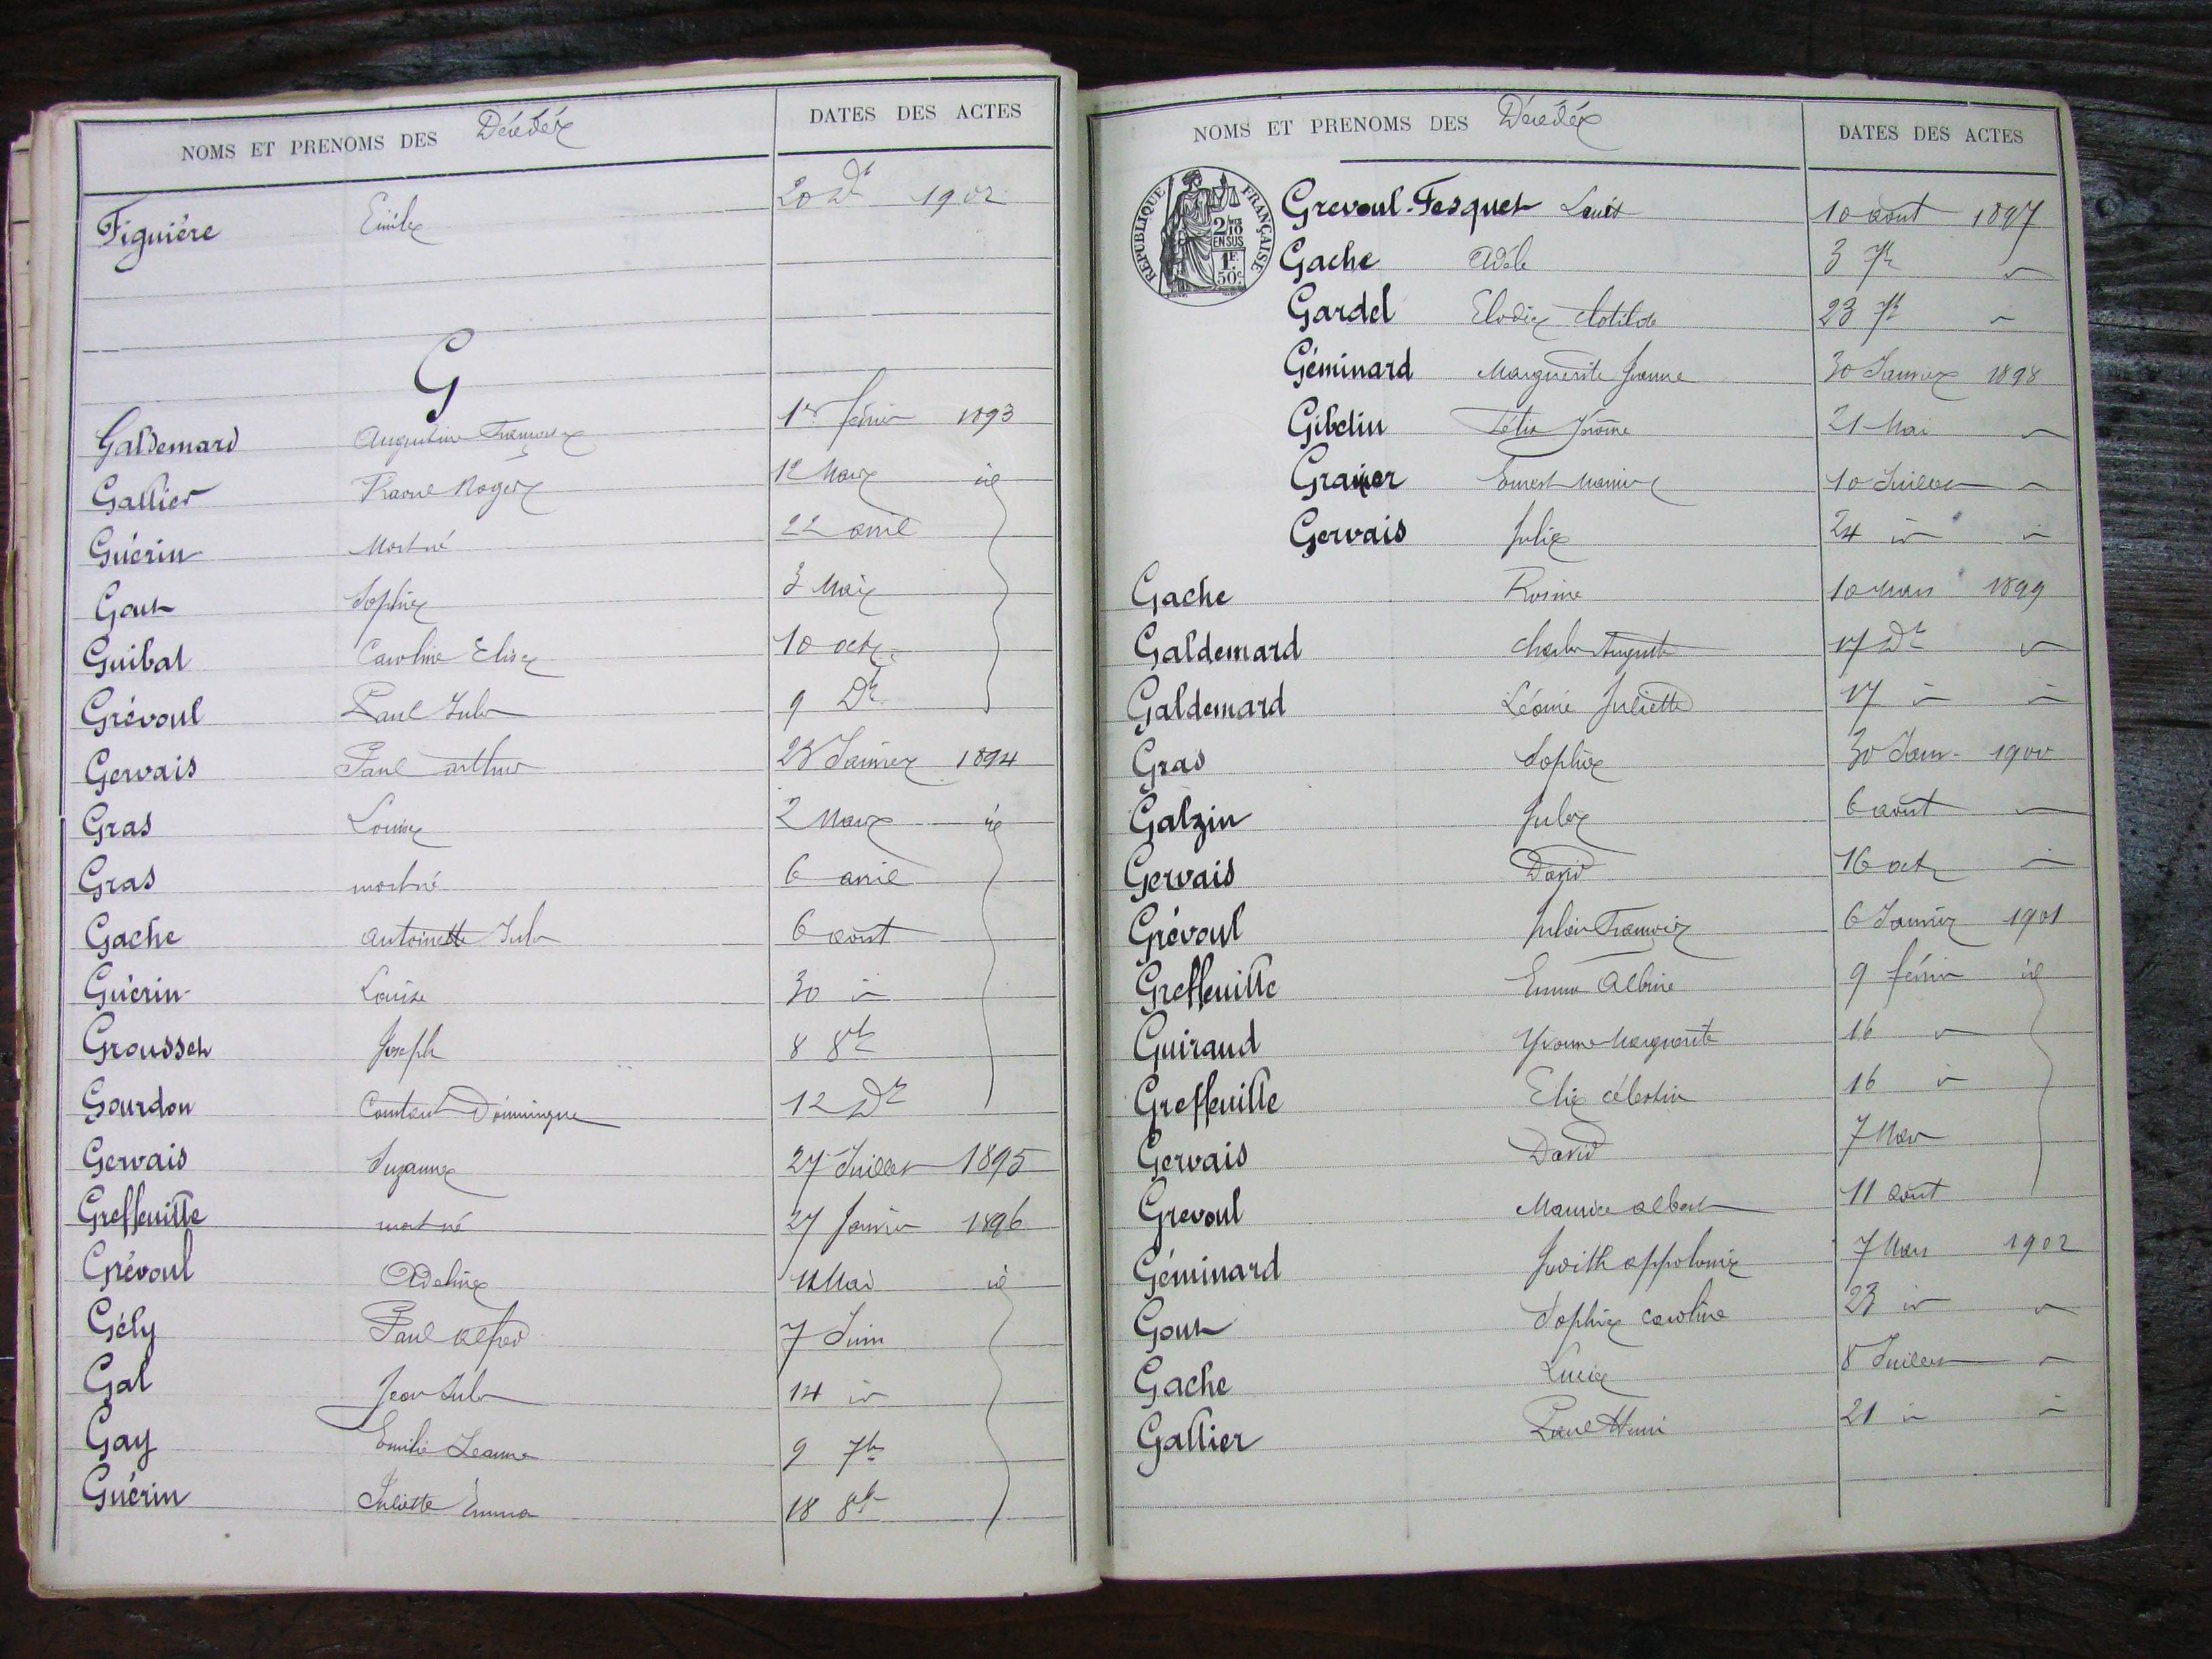 NOMS ET PRENOMS DES Décédés DATES DES ACTES
Figuiére Emile 20 Dbre 1902
G
Galdemard Augustine 1er février 1893
Gallier Raoul Roger 12 Mars id
Guérin Mort né 22 avril
Gout Sophie 3 Mai
Guibal Caroline Elise 10 octe
Grévoul Paul Jules 9 Dbre
Gervais Paul arthur 28 Janvier 1894
Gras Louise 2 Mars id
Gras mort né 6 avril
Gache Antoinette Julie 6 aout
Guérin Louise 30 id
Grousset Joseph 8 8bre
Gourdon Constant Dominique 12 Dbre
Gervais Suzanne 27 Juillet 1895
Greffeuille mort né 27 Janvier 1896
Grévoul Adeline 11 Mai id
Gély Paul alfred 7 Juin
Gal Jean Jules 14 id
Gay Emilie Jeanne 9 7bre
Guérin Juliette Emma 18 8bre
NOMS ET PRENOMS DES Décédés DATES DES ACTES
REPUBLIQUE FRANÇAISE
2/10
EN SUS
1F
50c
Grevoul-Fesquet Louis 10 aout 1897
Gache Adèle 3 7bre id
Gardel Elodie Clotilde 23 7bre id
Géminard Marguerite Jeanne 30 Janvier 1898
Gibelin Jérôme 21 Mai id
Granier Ernest 10 Juillet id
Gervais Julie 24 id id
Gache Rosine 10 Mars 1899
Galdemard Charles Auguste 17 Dbre id
Galdemard Léonie Juliette 17 id id
Gras Sophie 30 Janv. 1900
Galzin Jules 6 aout id
Gervais David 16 octe id
Grévoul Julien François 6 Janvier 1901
Greffeuille Emma Albine 9 février id
Guiraud Yvonne Marguerite 16 id
Greffeuille Elie Célestin 16 id
Gervais David 7 Mars
Grevoul Maurice albert 11 aout
Géminard Judith appolonie 7 Mars 1902
Gout Sophie Caroline 23 id id
Gache Lucie 8 Juillet id
Gallier Paul Henri 21 id id